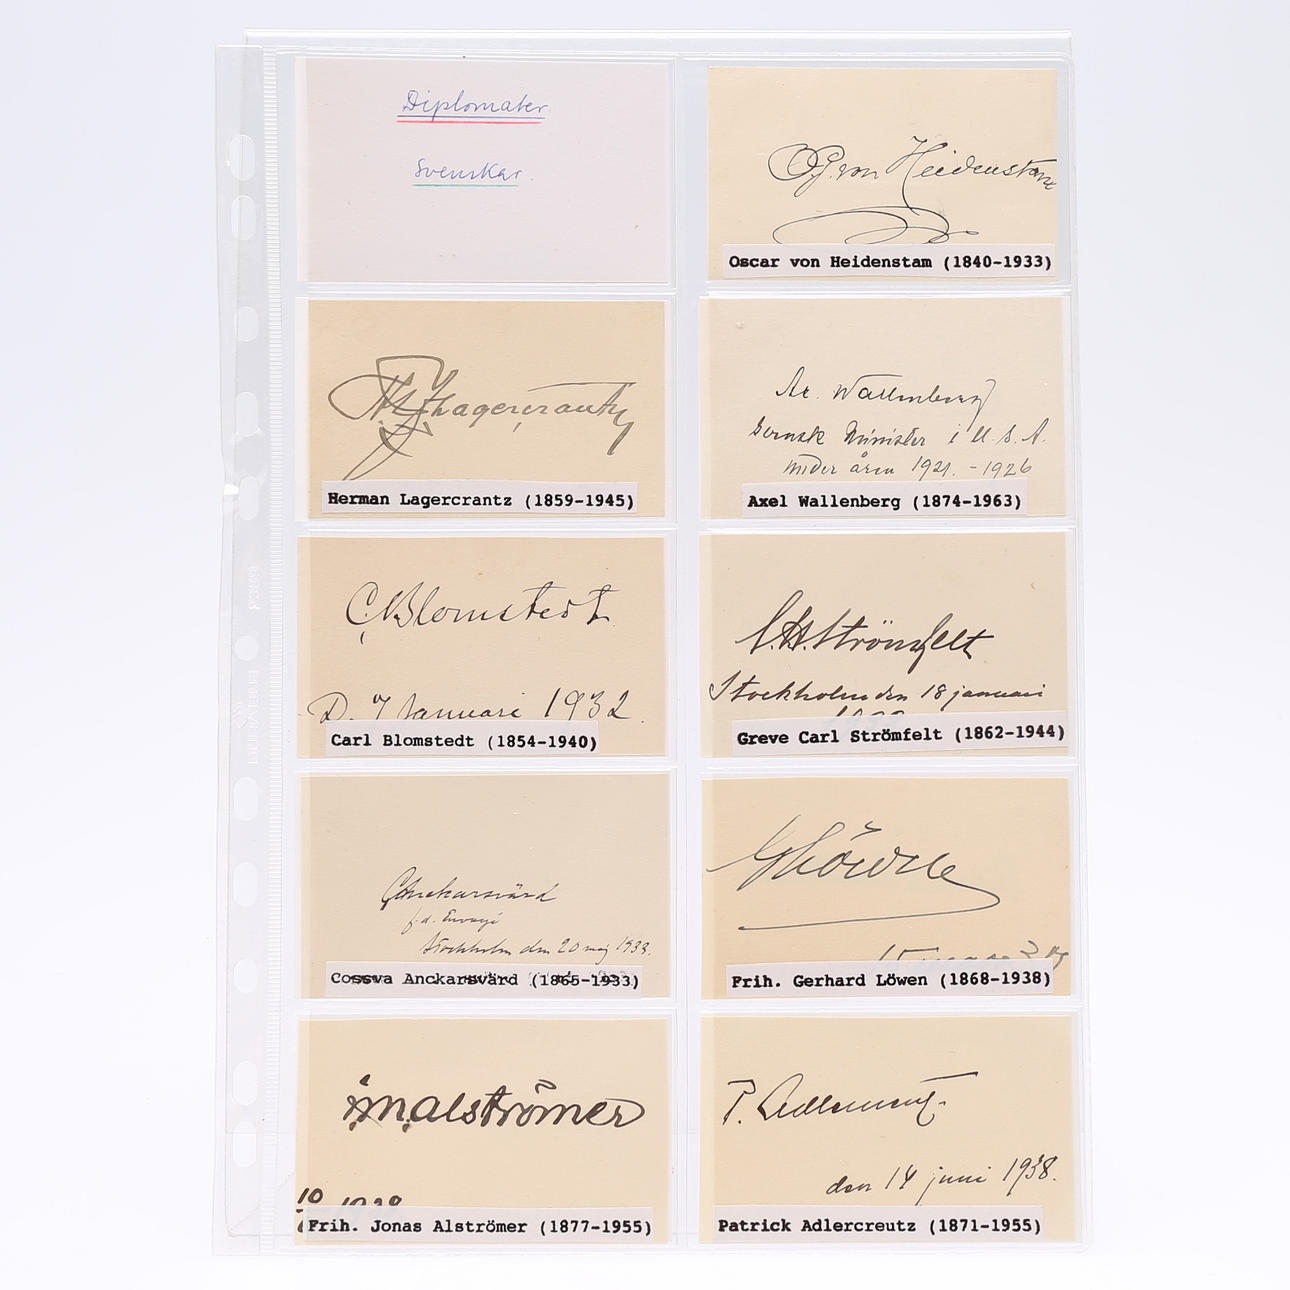 Diplomater
Svenskar.
O. G. von Heidenstam
Oscar von Heidenstam (1840-1933)
Lagercrantz
Herman Lagercrantz (1859-1945)
Ax. Wallenberg
Svensk Minister i U.S.A.
under åren 1921. - 1926
Axel Wallenberg (1874-1963)
C. Blomstedt
D. 7 Januari 1932.
Carl Blomstedt (1854-1940)
C.H. Strömfelt
Stockholm den 18 januari
Greve Carl Strömfelt (1862-1944)
CAnckarsvärd
f.d. Envoyé
Stockholm den 20 maj 1933.
Cossva Anckarsvärd (1865-1933)
GLöwen
Frih. Gerhard Löwen (1868-1938)
J.M. Alströmer
10
Frih. Jonas Alströmer (1877-1955)
P. Adlercreutz.
den 14 juni 1938.
Patrick Adlercreutz (1871-1955)